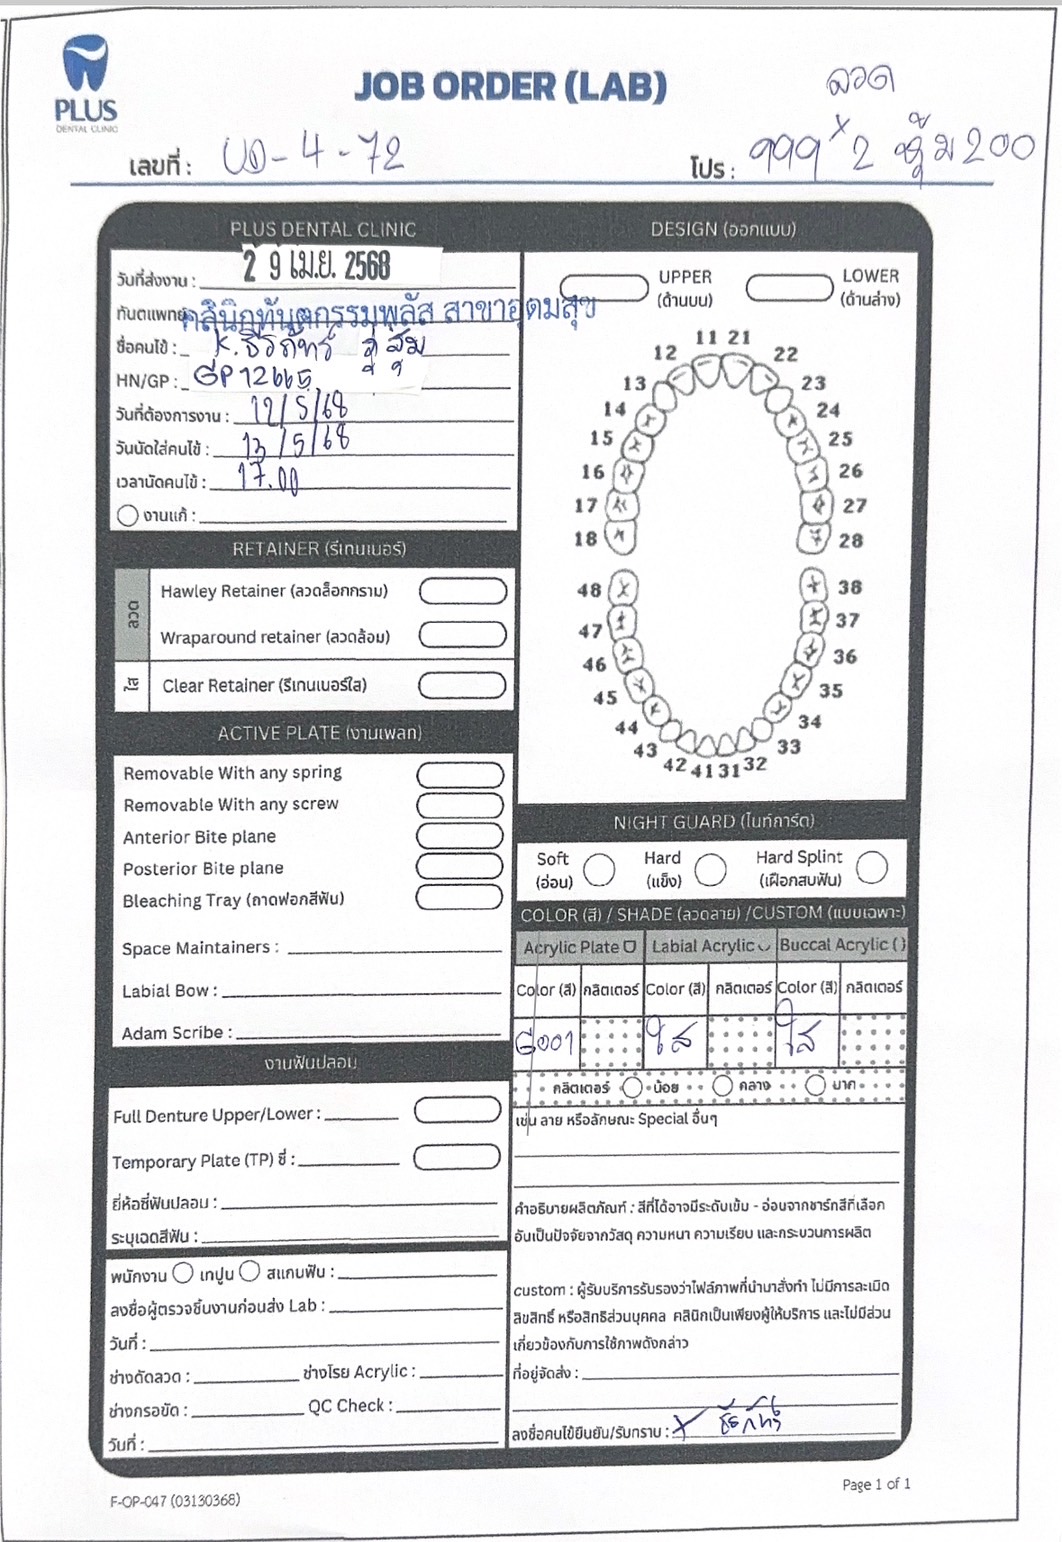 PLUS
DENTAL CLINIC
JOB ORDER (LAB)
ลวด
เลขที่ : UD-4-72
โปร : 999 x 2 หุ้ม 200
PLUS DENTAL CLINIC
วันที่ส่งงาน : 29 เม.ย. 2568
ทันตแพทย์ คลินิกทันตกรรมพลัส สาขาอุดมสุข
ชื่อคนไข้ : K. ธีรภัทร์
HN/GP : GP12665
วันที่ต้องการงาน : 12/5/68
วันนัดใส่คนไข้ : 13/5/68
เวลานัดคนไข้ : 17.00
งานแก้ :
RETAINER (รีเทนเนอร์)
ลวด
Hawley Retainer (ลวดล็อกกราม)
Wraparound retainer (ลวดล้อม)
ใส
Clear Retainer (รีเทนเนอร์ใส)
ACTIVE PLATE (งานเพลท)
Removable With any spring
Removable With any screw
Anterior Bite plane
Posterior Bite plane
Bleaching Tray (ถาดฟอกสีฟัน)
Space Maintainers :
Labial Bow :
Adam Scribe :
งานฟันปลอม
Full Denture Upper/Lower :
Temporary Plate (TP) ซี่ :
ยี่ห้อซี่ฟันปลอม :
ระบุเฉดสีฟัน :
พนักงาน เทปูน สแกนฟัน :
ลงชื่อผู้ตรวจชิ้นงานก่อนส่ง Lab :
วันที่ :
ช่างดัดลวด : ช่างโรย Acrylic :
ช่างกรอขัด : QC Check :
วันที่ :
DESIGN (ออกแบบ)
UPPER (ด้านบน)
LOWER (ด้านล่าง)
11 21
12 22
13 23
14 24
15 25
16 26
17 27
18 28
48 38
47 37
46 36
45 35
44 34
43 33
42 41 31 32
NIGHT GUARD (ไนท์การ์ด)
Soft (อ่อน)
Hard (แข็ง)
Hard Splint (เฝือกสบฟัน)
COLOR (สี) / SHADE (ลวดลาย) /CUSTOM (แบบเฉพาะ)
Acrylic Plate Labial Acrylic Buccal Acrylic ( )
Color (สี) กลิตเตอร์ Color (สี) กลิตเตอร์ Color (สี) กลิตเตอร์
G001 ใส ใส
กลิตเตอร์ น้อย กลาง มาก
เช่น ลาย หรือลักษณะ Special อื่นๆ
คำอธิบายผลิตภัณฑ์ : สีที่ได้อาจมีระดับเข้ม - อ่อนจากชาร์กสีที่เลือก
อันเป็นปัจจัยจากวัสดุ ความหนา ความเรียบ และกระบวนการผลิต
custom : ผู้รับบริการรับรองว่าไฟล์ภาพที่นำมาสั่งทำ ไม่มีการละเมิด
ลิขสิทธิ์ หรือสิทธิส่วนบุคคล คลินิกเป็นเพียงผู้ให้บริการ และไม่มีส่วน
เกี่ยวข้องกับการใช้ภาพดังกล่าว
ที่อยู่จัดส่ง :
ลงชื่อคนไข้ยืนยัน/รับทราบ : x ธีรภัทร์
F-OP-047 (03130368)
Page 1 of 1